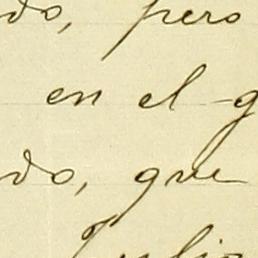 do, pero
en el g
do, que